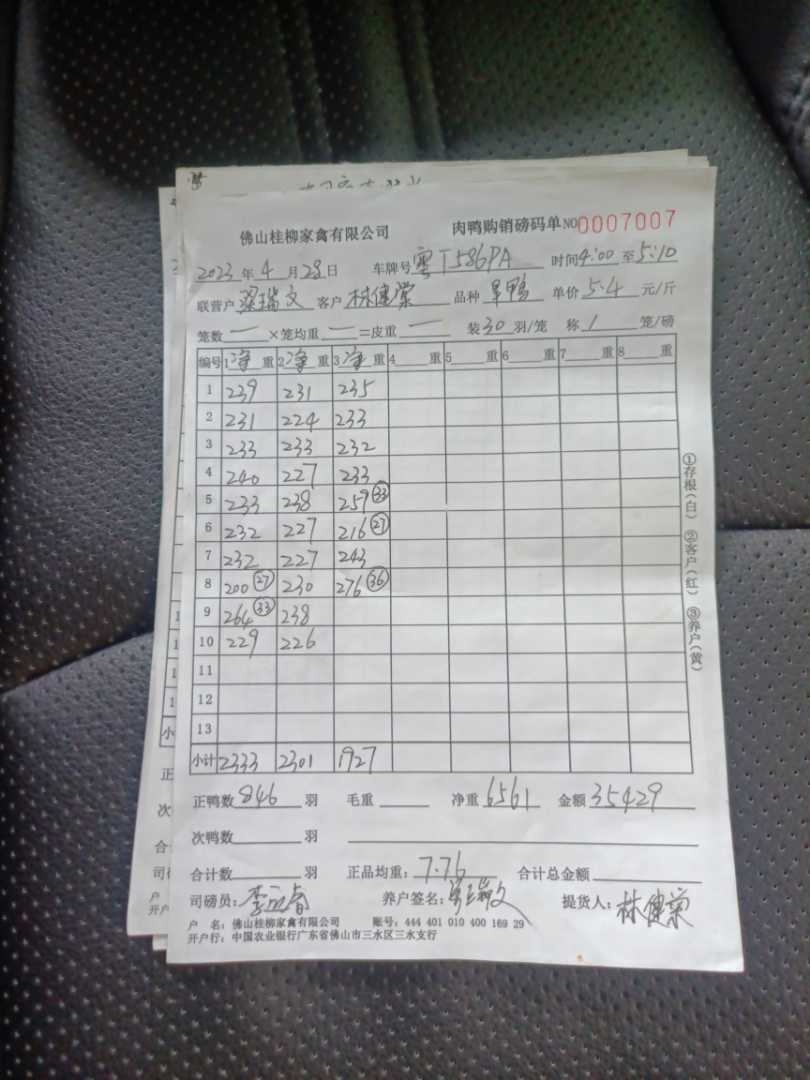 佛山桂柳家禽有限公司 肉鸭购销磅码单 NO0007007
2023年4月28日 车牌号 粤T586PA 时间4:00至5:10
联营户 梁瑞文 客户 林健棠 品种 旱鸭 单价 5.4 元/斤
笼数 — ×笼均重 — =皮重 — 装30羽/笼 称1笼/磅
编号 1净重 2净重 3净重 4重 5重 6重 7重 8重
1 239 231 235
2 231 224 233
3 233 233 232
4 240 227 233
5 233 238 259 33
6 232 227 216 27
7 232 227 243
8 200 27 230 276 36
9 264 33 238
10 229 226
11
12
13
小计 2333 2301 1927
正鸭数 846 羽 毛重 净重 6561 金额 35429
次鸭数 羽
合计数 羽 正品均重：7.76 合计总金额
司磅员： 养户签名：梁瑞文 提货人：林健棠
户 名：佛山桂柳家禽有限公司 账号：444 401 010 400 169 29
开户行：中国农业银行广东省佛山市三水区三水支行
①存根(白) ②客户(红) ③养户(黄)